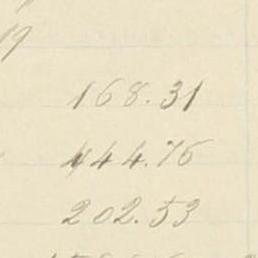 19
168.31
444.76
202.53